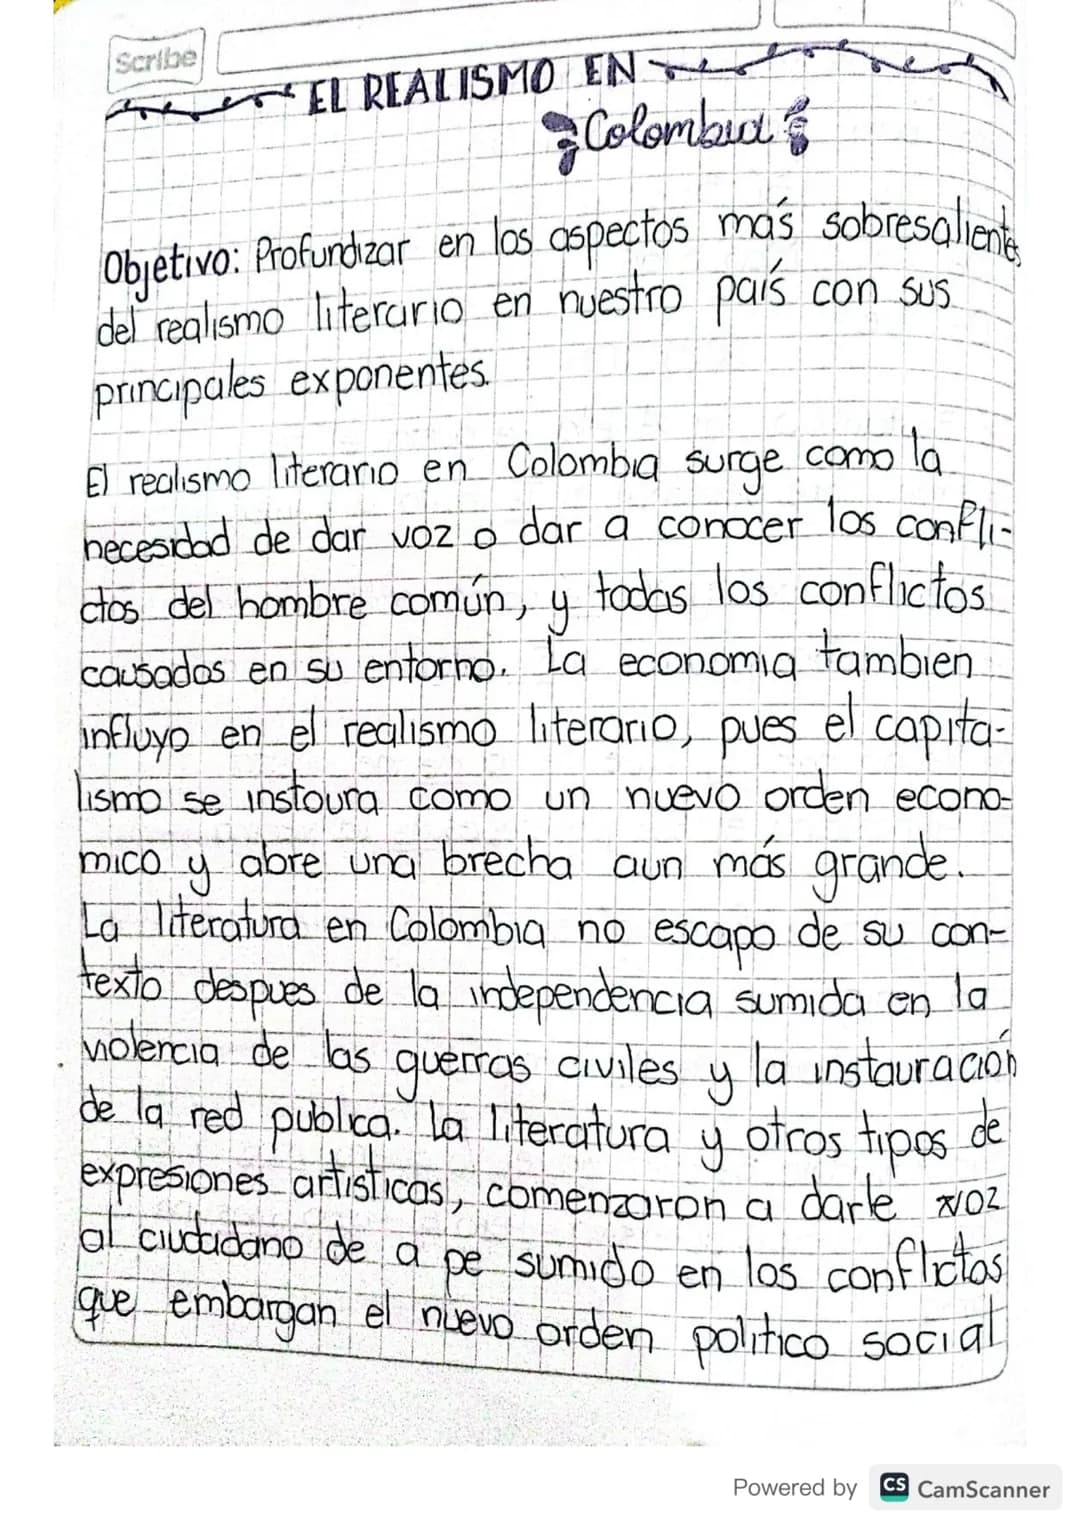 Scribe
EL REALISMO EN
Colombia
Objetivo: Profundizar en los aspectos más sobresalientes
del realismo literario en nuestro país con sus
principales exponentes.
El realismo literario en Colombia surge como la
necesidad de dar voz o dar a conocer los confli-
ctos del hombre común, y todos los conflictos
causados en su entorno. La economia tambien
influyo en el realismo literario, pues el capita-
lismo se instaura como un nuevo orden econo-
mico y abre una brecha aun más grande.
La literatura en Colombia no escapo de su con-
texto despues de la independencia sumida en la
violencia de las guerras civiles y la instauración
de la red publica. La literatura y otros tipos de
expresiones artisticas, comenzaron a darle voz
al ciudadano de a pe sumido en los conflictos
que embargan el nuevo orden politico social
Powered by CS CamScanner